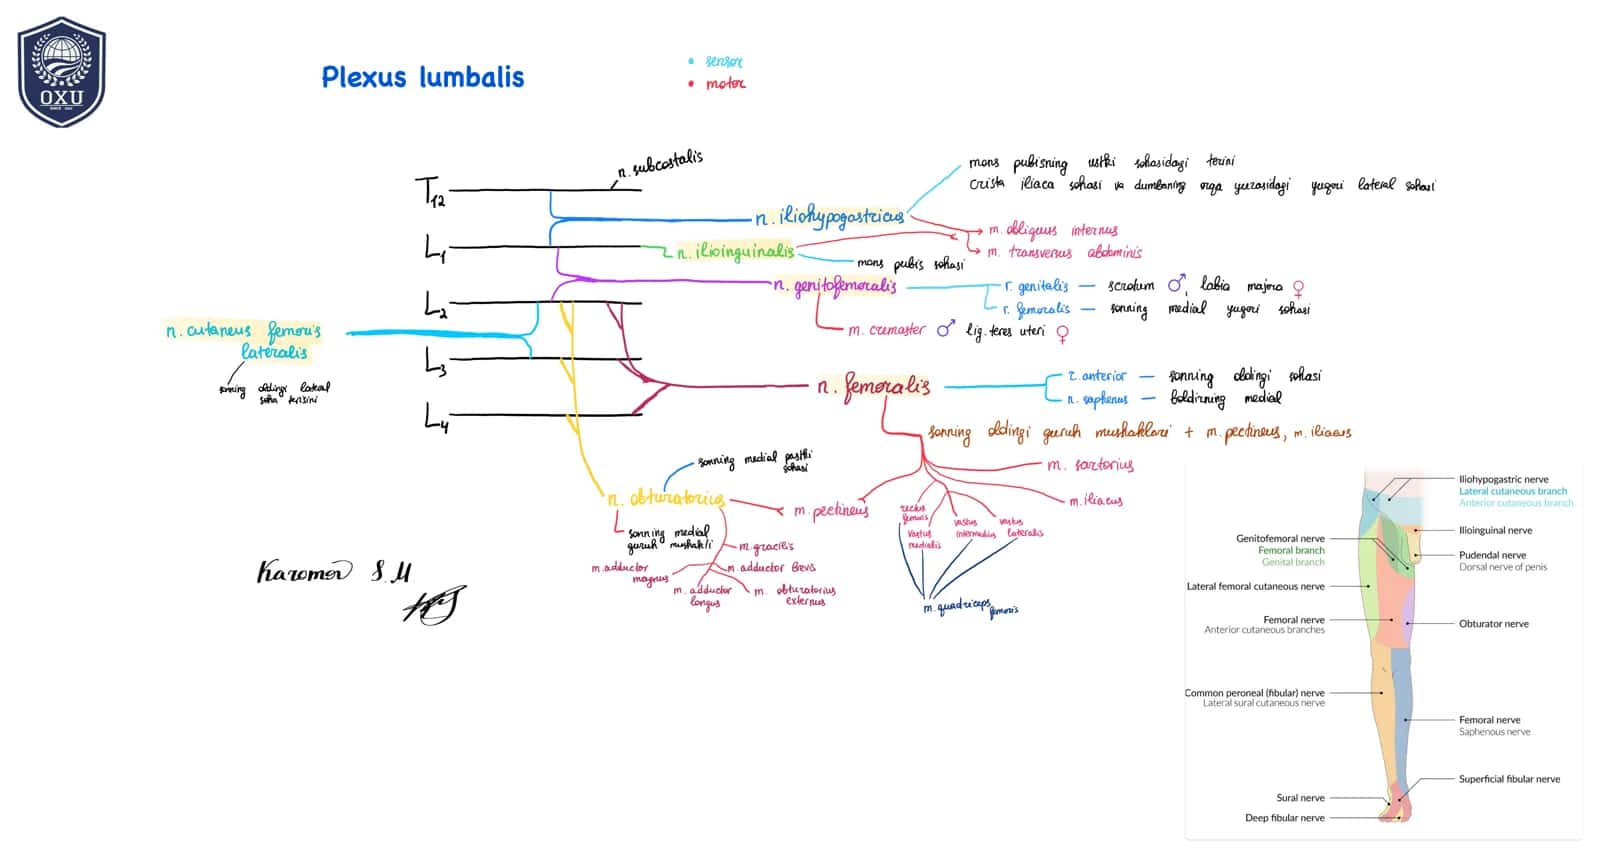 OXU
SINCE
Plexus lumbalis
• sensor
• motor
T12
n. subcostalis
mons pubisning ustki sohasidagi terini
crista iliaca sohasi va dumbaning orqa yuzasidagi yuqori lateral sohasi
n. iliohypogastricus
m. obliquus internus
m. transversus abdominis
L1
n. ilioinguinalis
mons pubis sohasi
n. genitofemoralis
r. genitalis — scrotum ♂, labia majora ♀
r. femoralis — sonning medial yuqori sohasi
m. cremaster ♂ lig. teres uteri ♀
L2
n. cutaneus femoris
lateralis
sonning oldingi lateral
soha terisini
L3
n. femoralis
r. anterior — sonning oldingi sohasi
n. saphenus — boldirning medial
L4
sonning oldingi guruh mushaklari + m. pectineus, m. iliacus
sonning medial pastki
sohasi
m. sartorius
m. iliacus
n. obturatorius
m. pectineus
rectus
femoris
vastus
medialis
vastus
intermedius
vastus
lateralis
sonning medial
guruh mushakli
m. gracilis
m. adductor
magnus
m. adductor brevis
m. adductor
longus
m. obturatorius
externus
m. quadriceps
femoris
Karomov S.M
Iliohypogastric nerve
Lateral cutaneous branch
Anterior cutaneous branch
Ilioinguinal nerve
Genitofemoral nerve
Femoral branch
Genital branch
Pudendal nerve
Dorsal nerve of penis
Lateral femoral cutaneous nerve
Femoral nerve
Anterior cutaneous branches
Obturator nerve
Common peroneal (fibular) nerve
Lateral sural cutaneous nerve
Femoral nerve
Saphenous nerve
Superficial fibular nerve
Sural nerve
Deep fibular nerve